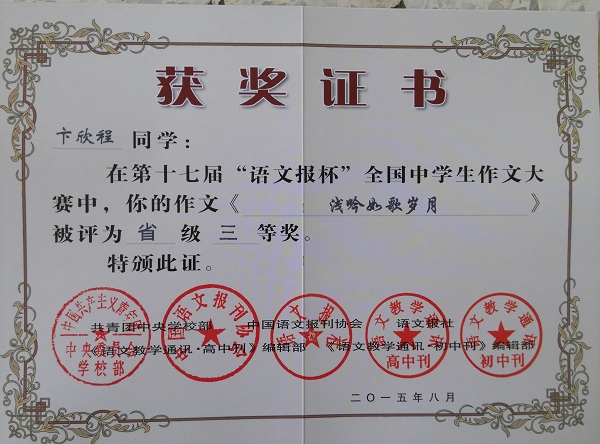 获奖证书
卞欣程 同学：
在第十七届“语文报杯”全国中学生作文大
赛中，你的作文《 浅吟如歌岁月 》
被评为 省 级 三 等奖。
特颁此证。
共青团中央学校部 中国语文报刊协会 语文报社
《语文教学通讯·高中刊》编辑部 《语文教学通讯·初中刊》编辑部
中国共产主义青年团
中央委员会
学校部
中国语文报刊协会
语文报社
语文教学通讯
高中刊
语文教学通讯
初中刊
二〇一五年八月